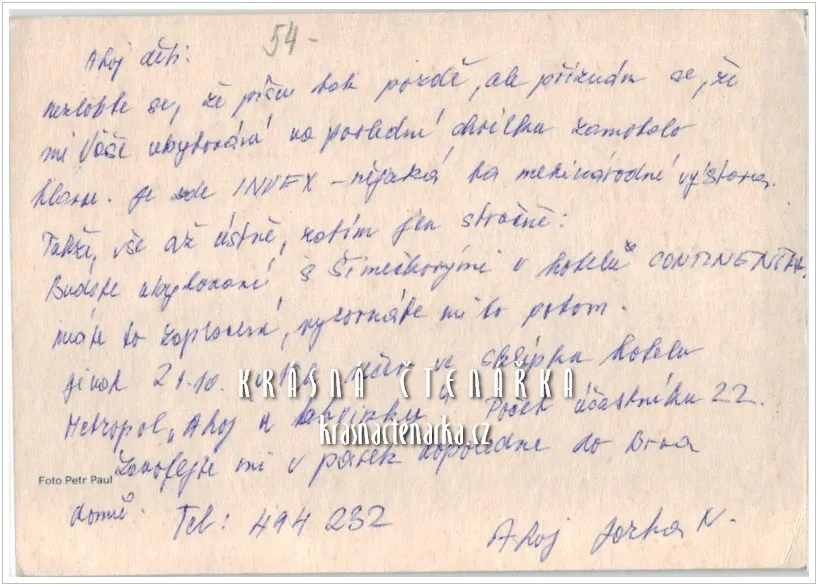 54-
Ahoj děti:
nezlobte se, že píšu tak pozdě, ale přiznám se, že
mi Vaše ubytování na poslední chvilku zamotalo
hlavu. Je zde INVEX – nějaká ta mezinárodní výstava.
Takže, vše až ústně, zatím jen stručně:
Budete ubytovaní s Šimečkovými v hotelu CONTINENTAL.
máte to zaplacené, vyrovnáte mi to potom.
jinak 21.10. ve sklípku hotelu
KRÁSNÁ ČTENÁŘKA
Metropol „Ahoj Počet účastníků 22.
krasnactenarka.cz
Zavolejte mi v pátek dopoledne do Brna
Foto Petr Paul
domů.
Tel: 494 232
Ahoj Jorka N.